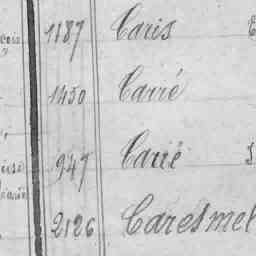 1187 Caris
1450 Carré
947 Carié
2126 Caresmel